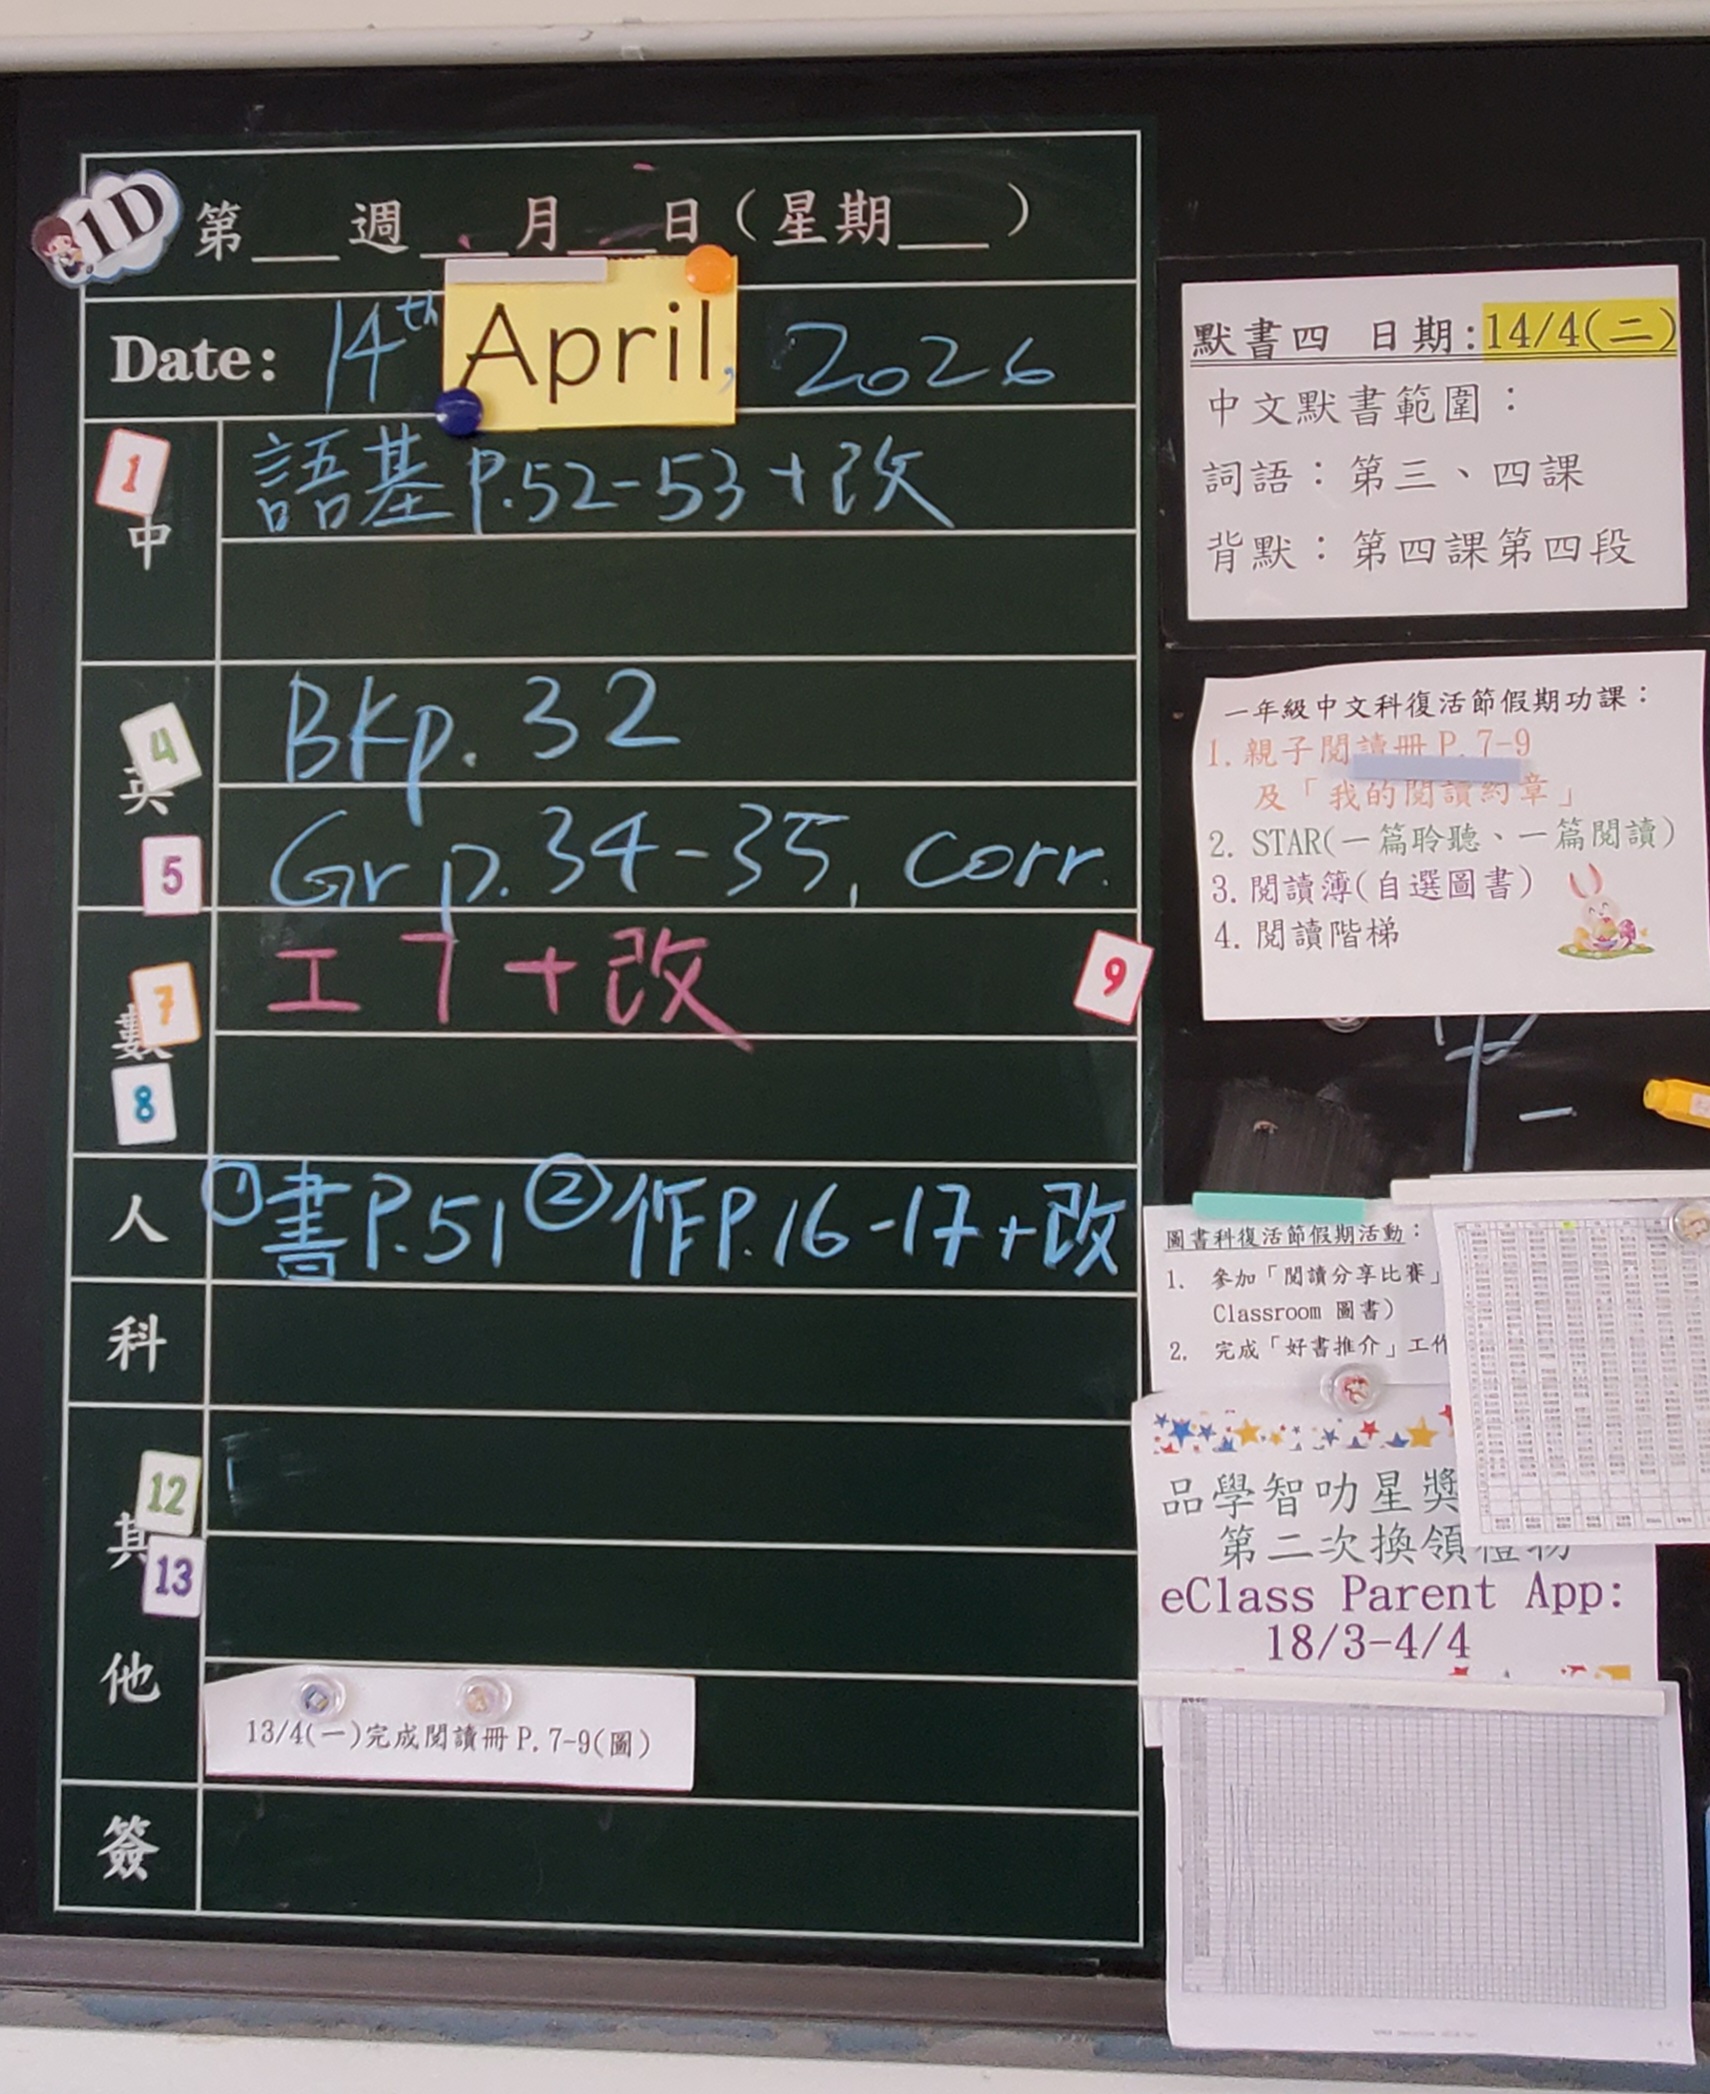 1D
第___週___月___日（星期___）
Date: 14th April, 2026
1
中
語基 P.52-53 + 改
4
英
Bk p. 32
5
Gr p. 34-35, corr.
7
數
工7 + 改
9
8
人
①書P.51 ②作P.16-17+改
科
12
其
13
他
13/4(一)完成閱讀冊 P. 7-9(圖)
簽
默書四 日期:14/4(二)
中文默書範圍：
詞語：第三、四課
背默：第四課第四段
一年級中文科復活節假期功課：
1. 親子閱讀冊 P. 7-9
及「我的閱讀約章」
2. STAR(一篇聆聽、一篇閱讀)
3. 閱讀簿(自選圖書)
4. 閱讀階梯
圖書科復活節假期活動：
1. 參加「閱讀分享比賽」
Classroom 圖書)
2. 完成「好書推介」工作
品學智叻星獎
第二次換領禮物
eClass Parent App:
18/3-4/4